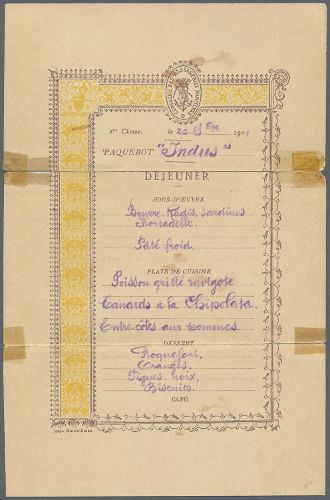 2me Classe. le 25 9bre 1901
PAQUEBOT "Indus"
DÉJEUNER
HORS-D'ŒUVRE
Beurre. Radis. Sardines
Mortadelle.
Pâté froid.
PLATS DE CUISINE
Poisson grillé ravigote
Canards à la Chipolata.
Entre-côtes aux pommes
DESSERT
Roquefort,
Oranges,
Figues, noix,
Biscuits.
CAFÉ